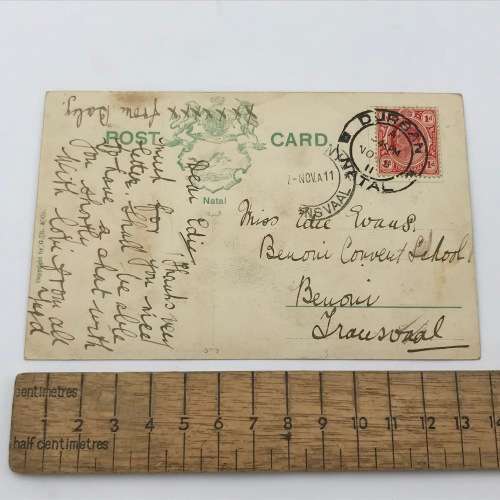 POST CARD
Natal
XXXXXX from Baby.
Dear Edie
Thanks very
much for you nice
letter shall be able
to have a chat with
You shortly
With love from all
DURBAN
NO
11
NATAL
1d
1d
7-NOV.A11
NSVAAL
Miss Edie Evans.
Benoni Convent School
Benoni
Transvaal
centimetres
1 2 3 4 5 6 7 8 9 10 11 12 13 14
half centimetres